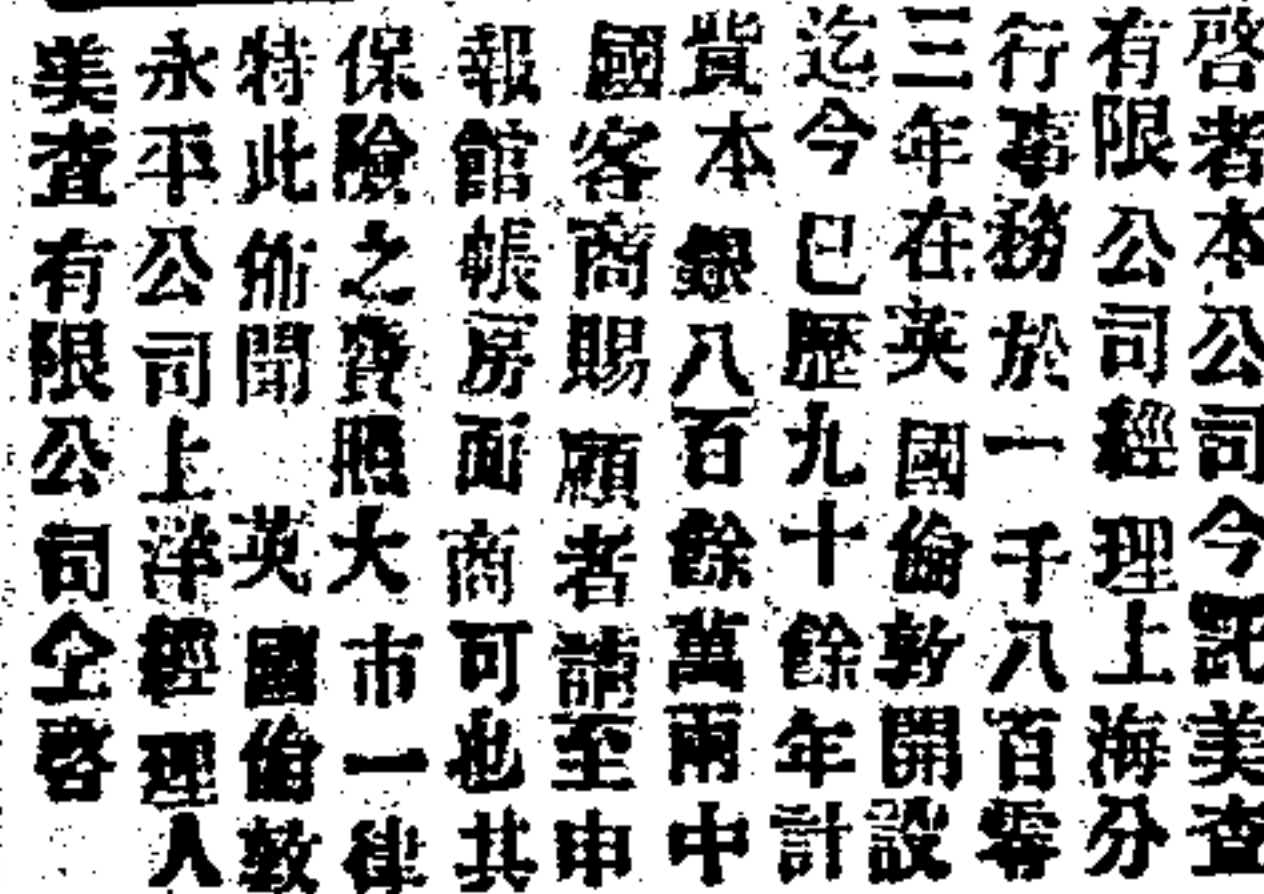 啓者本公司今託美查
有限公司經理上海分
行事務於一千八百零
三年在英國倫敦開設
迄今已歷九十餘年計
貲本銀八百餘萬兩中
國客商賜顧者請至申
報館帳房面商可也其
保險之費照大市一律
特此佈聞 英國倫敦
永平公司上洋經理人
美查有限公司仝啓